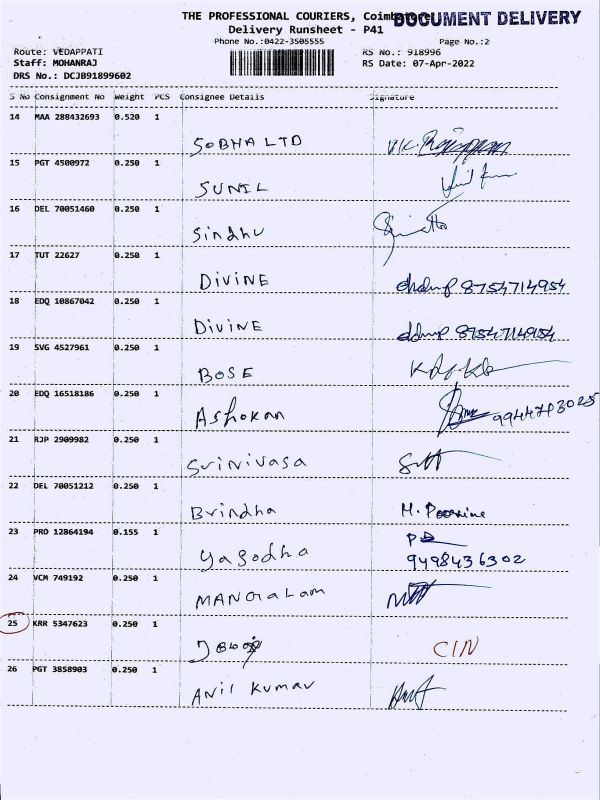 THE PROFESSIONAL COURIERS, Coimbatore
DOCUMENT DELIVERY
Delivery Runsheet - P41
Phone No.:0422-3505555
Page No.:2
Route: VEDAPPATI
RS No.: 918996
Staff: MOHANRAJ
RS Date: 07-Apr-2022
DRS No.: DCJB91899602
S No Consignment No Weight PCS Consignee Details Signature
14 MAA 288432693 0.520 1
SOBHA LTD V.K.
15 PGT 4500972 0.250 1
SUNIL
16 DEL 70051460 0.250 1
Sindhu
17 TUT 22627 0.250 1
DIVINE 8754714954
18 EDQ 10867042 0.250 1
DIVINE 8754714954
19 SVG 4527961 0.250 1
BOSE
20 EDQ 16518186 0.250 1
Ashokan 9944783025
21 RJP 2909982 0.250 1
Srinivasa
22 DEL 70051212 0.250 1
Brindha M.
23 PRO 12864194 0.155 1
Yasodha
9498436302
24 VCM 749192 0.250 1
MANGALAM
25 KRR 5347623 0.250 1
CIN
26 PGT 3858903 0.250 1
ANIL KUMAR